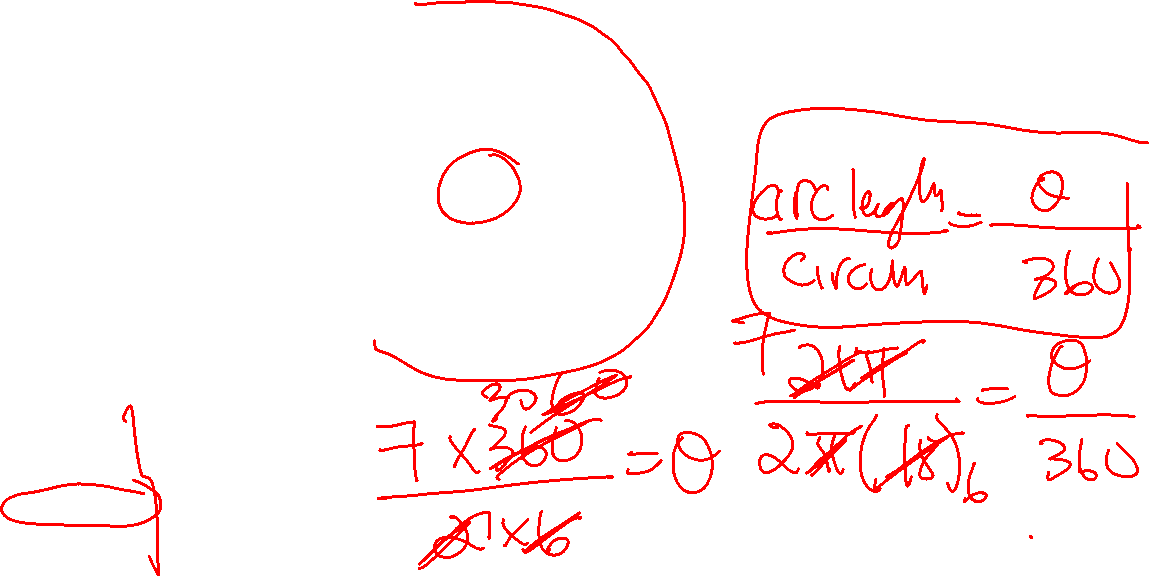 arc length / circum = θ / 360
7
21π / 2π(18) 6 = θ / 360
30 60
7 × 360 / 2 × 6 = θ